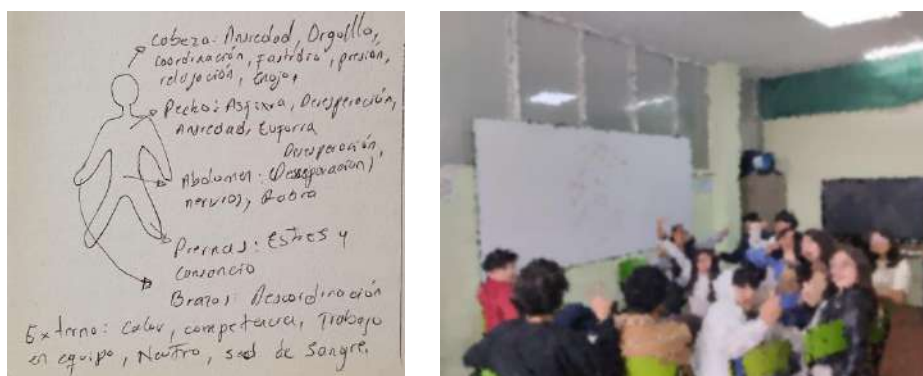 Cabeza: Ansiedad, Orgullo,
coordinación, fastidio, presión,
relajación, Enojo,
Pecho: Asfixia, Desesperación,
Ansiedad, Euforia
Desesperación,
Abdomen:
nervios, Rabia
Piernas: Estres y
Cansancio
Brazos: Descordinación
Externo: Calor, competencia, Trabajo
en equipo, Neutro, sed de Sangre.